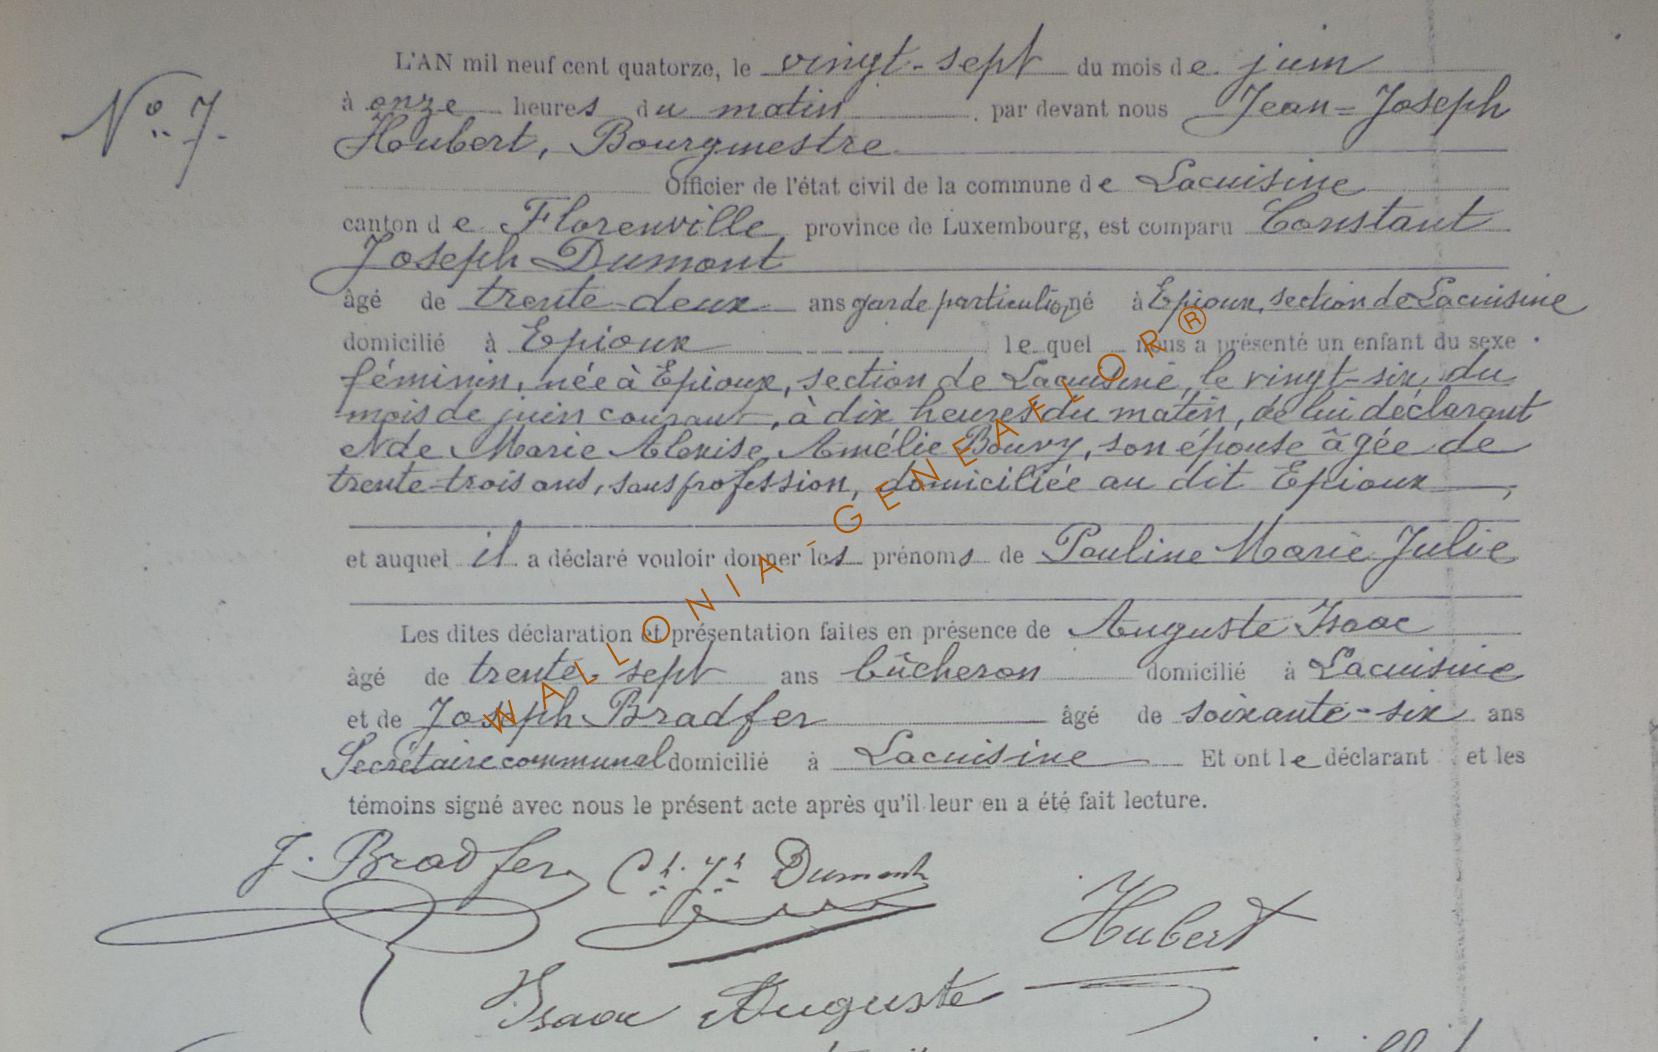 L'AN mil neuf cent quatorze, le vingt-sept du mois de juin
N° 7.
à onze heures du matin par devant nous Jean-Joseph
Houbert, Bourgmestre
Officier de l'état civil de la commune de Lacuisine
canton de Florenville, province de Luxembourg, est comparu Constant
Joseph Dumont
âgé de trente-deux ans garde particulier, né à Epioux, section de Lacuisine
domicilié à Epioux lequel nous a présenté un enfant du sexe
féminin, née à Epioux, section de Lacuisine, le vingt-six du
mois de juin courant, à dix heures du matin, de lui déclarant
et de Marie Aloxise Amélie Bouvy, son épouse âgée de
trente-trois ans, sans profession, domiciliée au dit Epioux,
et auquel il a déclaré vouloir donner les prénoms de Pauline Marie Julie
Les dites déclaration et présentation faites en présence de Auguste Isaac
âgé de trente-sept ans bûcheron domicilié à Lacuisine
et de Joseph Bradfer âgé de soixante-six ans
Secrétaire communal domicilié à Lacuisine Et ont le déclarant et les
témoins signé avec nous le présent acte après qu'il leur en a été fait lecture.
J. Bradfer Ct. Jh. Dumont
Hubert
Isaac Auguste
WALLONIA-GENEAFLOR®